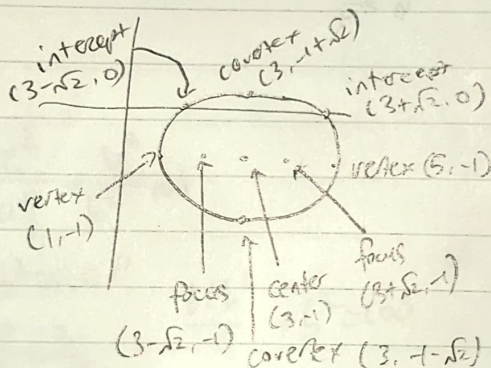 intercept
(3-√2, 0)
covertex
(3, -1+√2)
intercept
(3+√2, 0)
vertex (5, -1)
vertex
(1, -1)
focus
(3-√2, -1)
center
(3, -1)
focus
(3+√2, -1)
covertex (3, -1-√2)